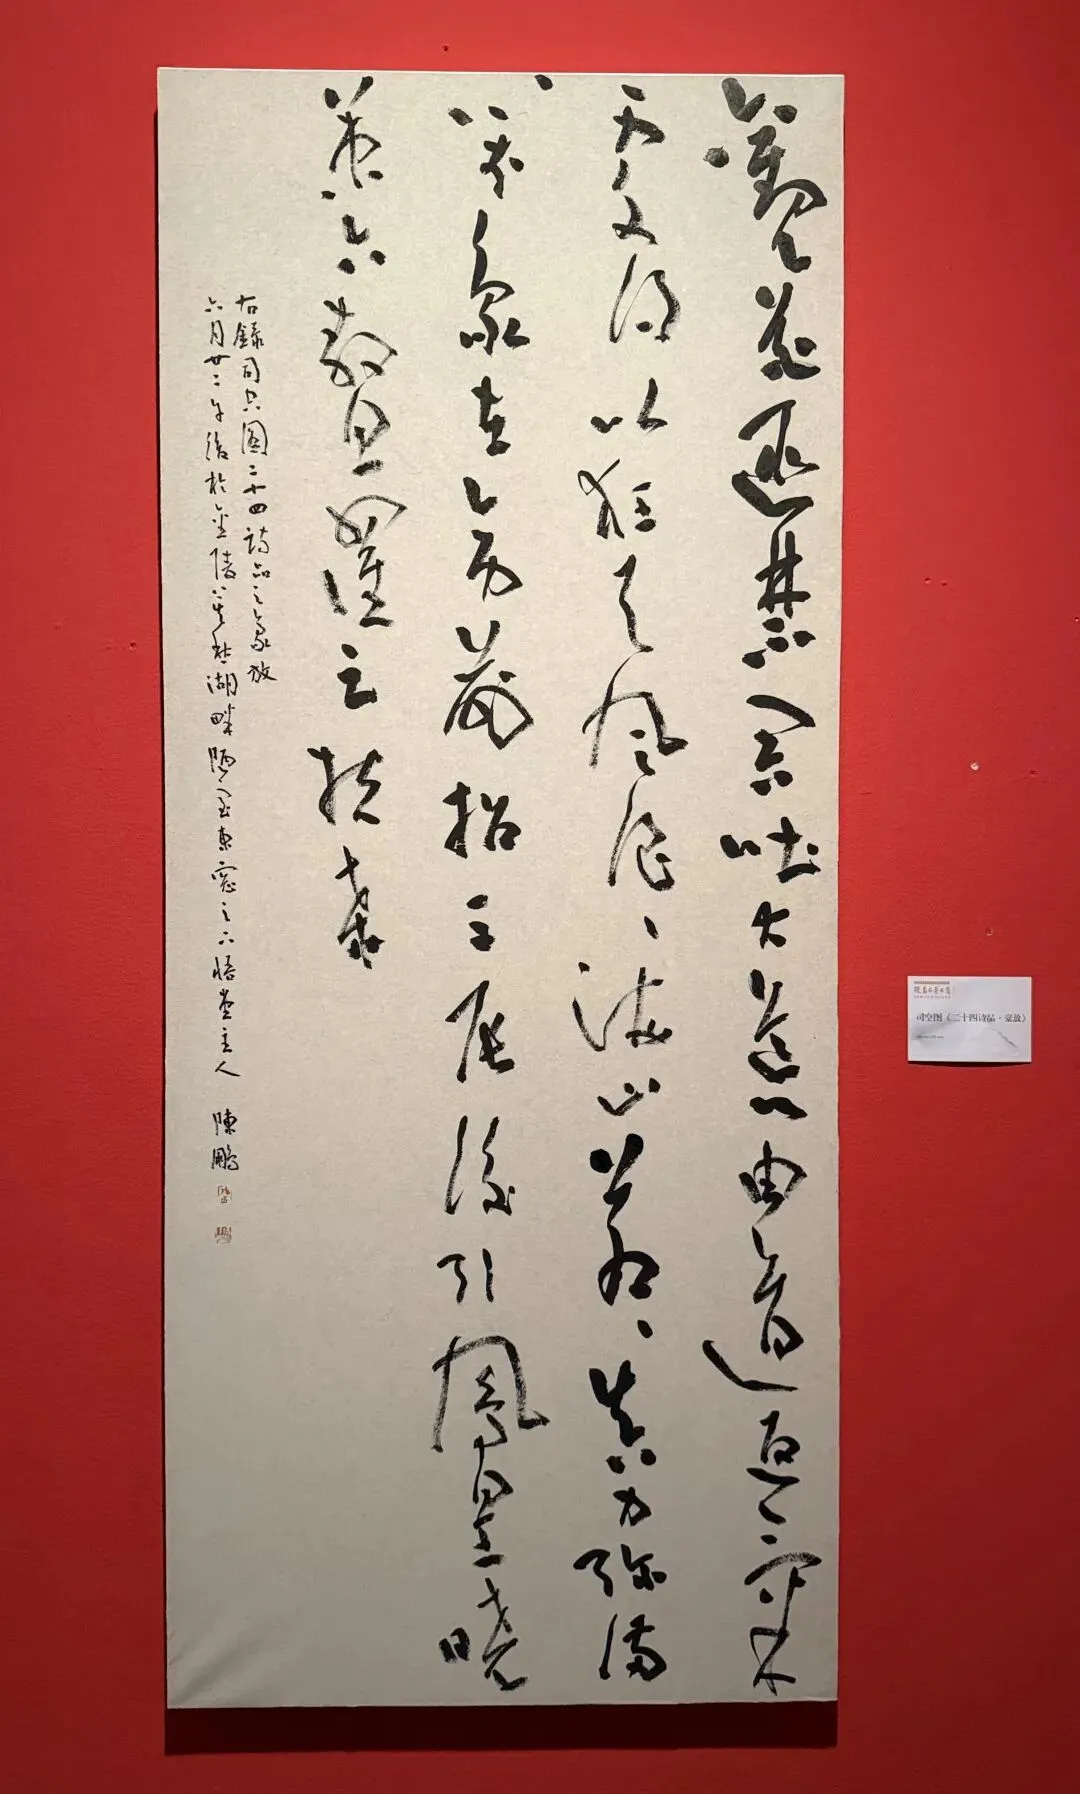 觀花匪禁吞吐大荒由道返氣
處得以狂天風浪、海山蒼、真力彌滿
萬象在旁前招三辰後引鳳皇曉
策六鰲濯足扶桑
右錄司空圖二十四詩品之豪放
六月廿二午後於金陵莫愁湖畔陋室東窗之 悟堂主人 陳鵬
司空图《二十四诗品·豪放》